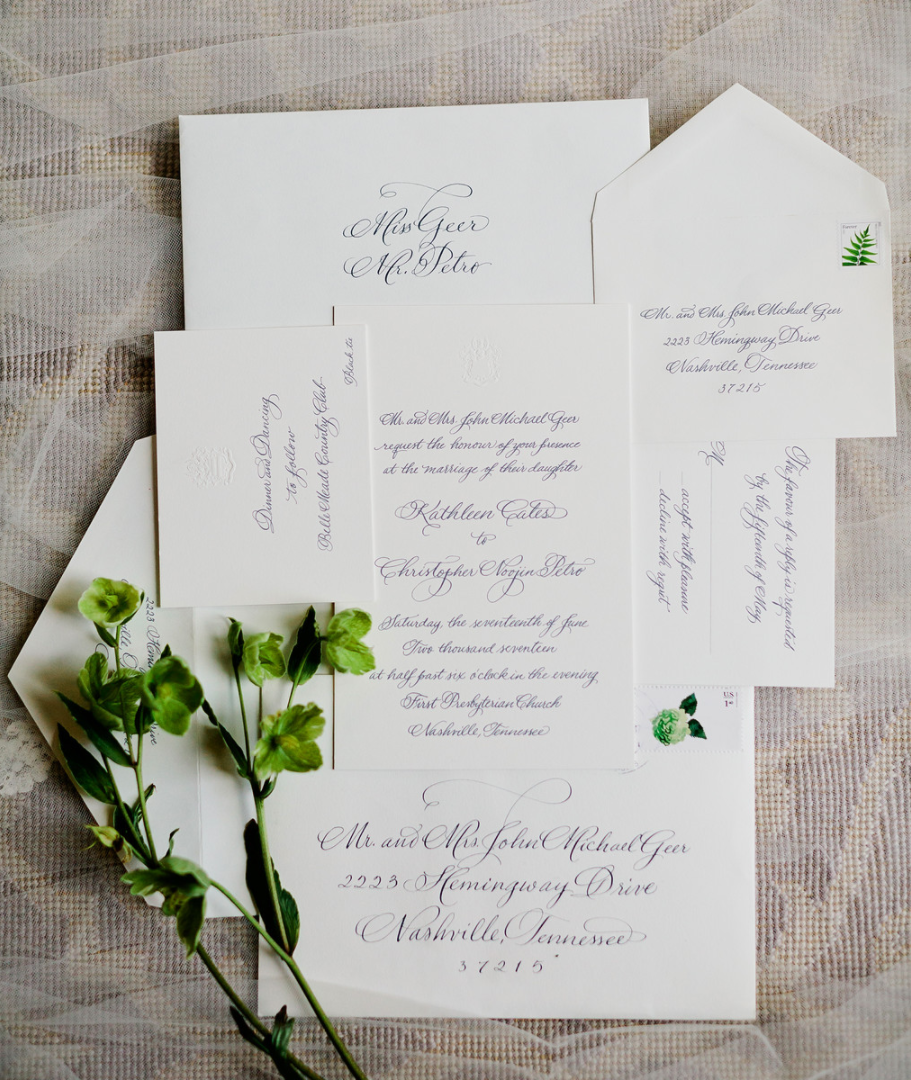 Miss Geer
Mr. Petro
Forever
Mr. and Mrs. John Michael Geer
2223 Hemingway Drive
Nashville, Tennessee
37215
Dinner and Dancing
to follow
Belle Meade Country Club
Black tie
Mr. and Mrs. John Michael Geer
request the honour of your presence
at the marriage of their daughter
Kathleen Cates
to
Christopher Noojin Petro
Saturday, the seventeenth of June
Two thousand seventeen
at half past six o'clock in the evening
First Presbyterian Church
Nashville, Tennessee
The favour of a reply is requested
by the fifteenth of May
M
accept with pleasure
decline with regret
US
Mr. and Mrs. John Michael Geer
2223 Hemingway Drive
Nashville, Tennessee
37215
2223